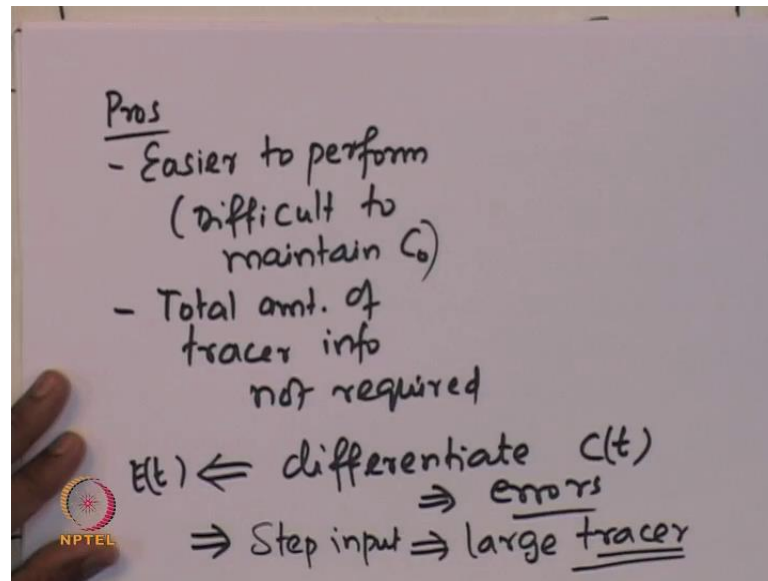 Pros
- Easier to perform
(Difficult to
maintain C₀)
- Total amt. of
tracer info
not required
E(t) ⇐ differentiate C(t)
⇒ errors
⇒ Step input ⇒ large tracer
NPTEL